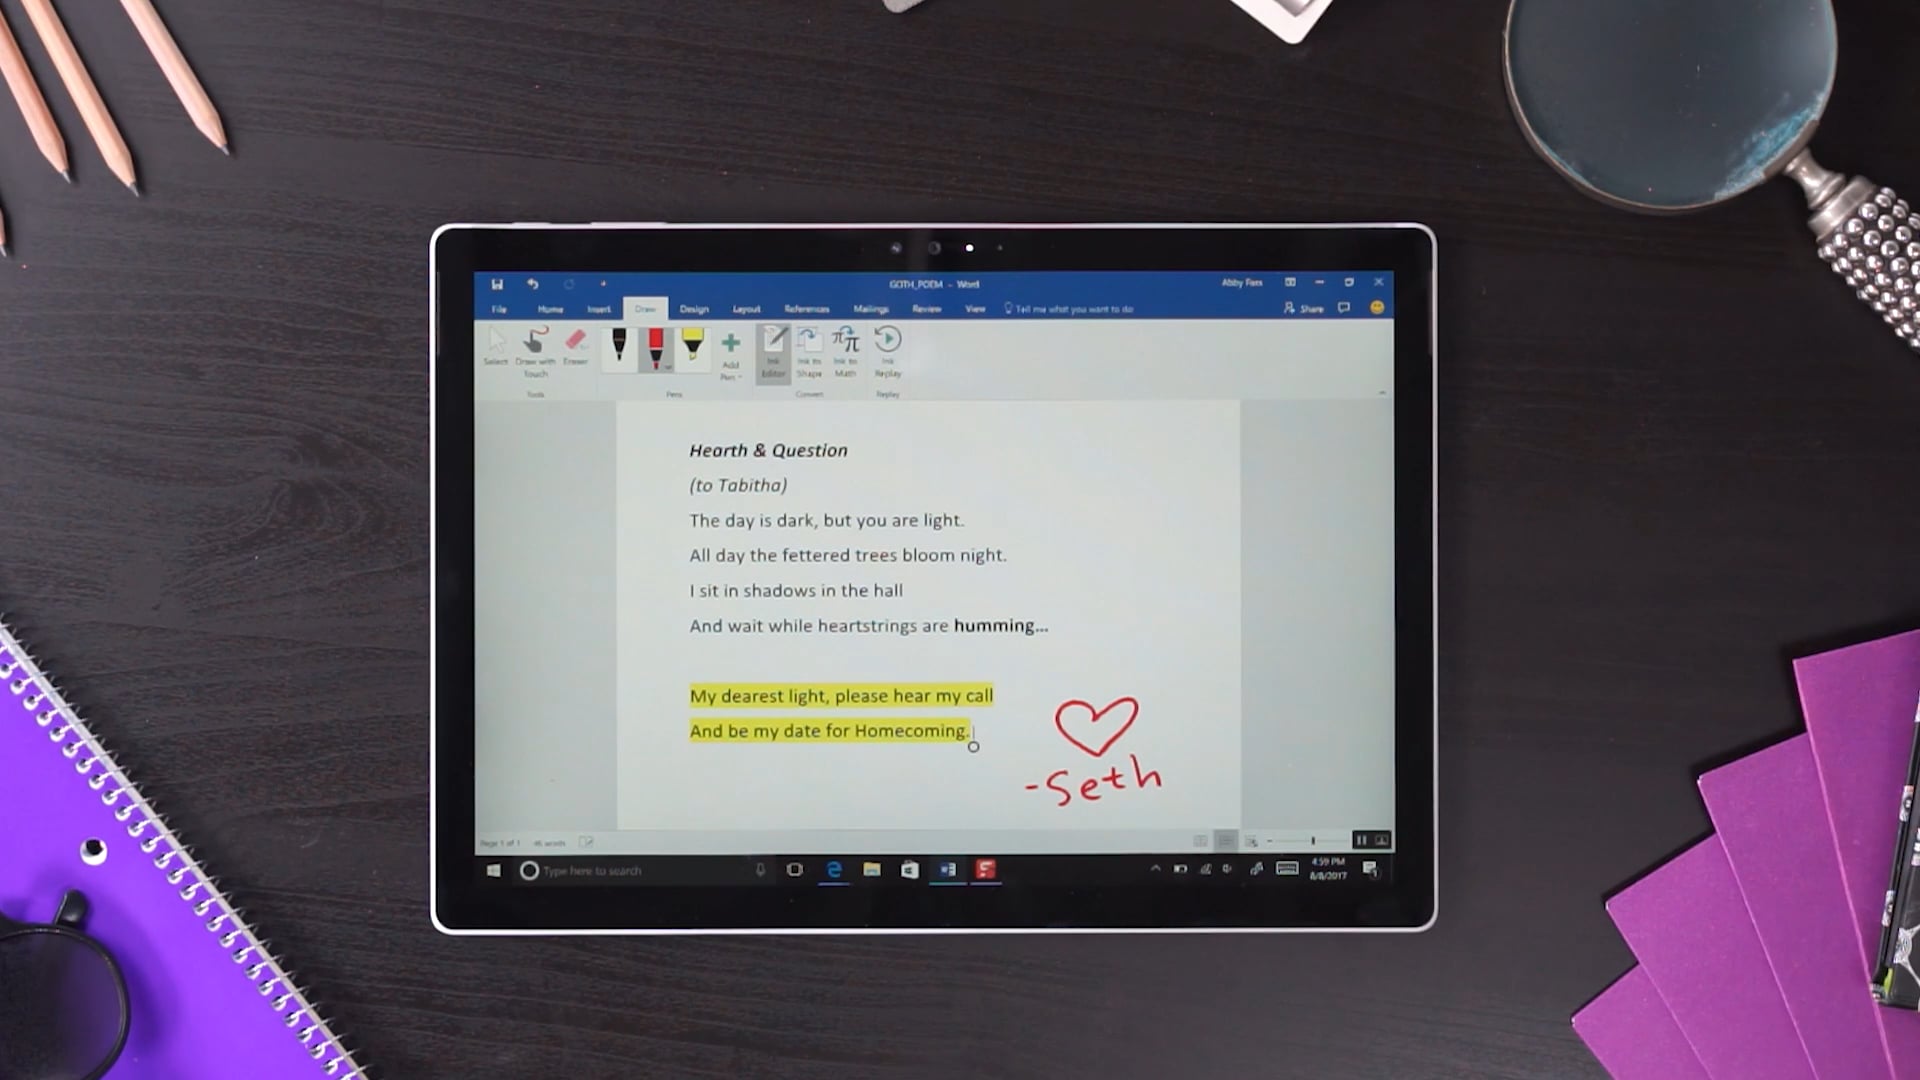 GOTH_POEM - Word
Abby Fiss
File Home Insert Draw Design Layout References Mailings Review View Tell me what you want to do Share
Select
Draw with Touch
Eraser
Add Pen
Ink Editor
Ink to Shape
Ink to Math
Ink Replay
Tools Pens Convert Replay
Hearth & Question
(to Tabitha)
The day is dark, but you are light.
All day the fettered trees bloom night.
I sit in shadows in the hall
And wait while heartstrings are humming...
My dearest light, please hear my call
And be my date for Homecoming.
-Seth
Page 1 of 1 46 words
Type here to search
4:59 PM
8/8/2017